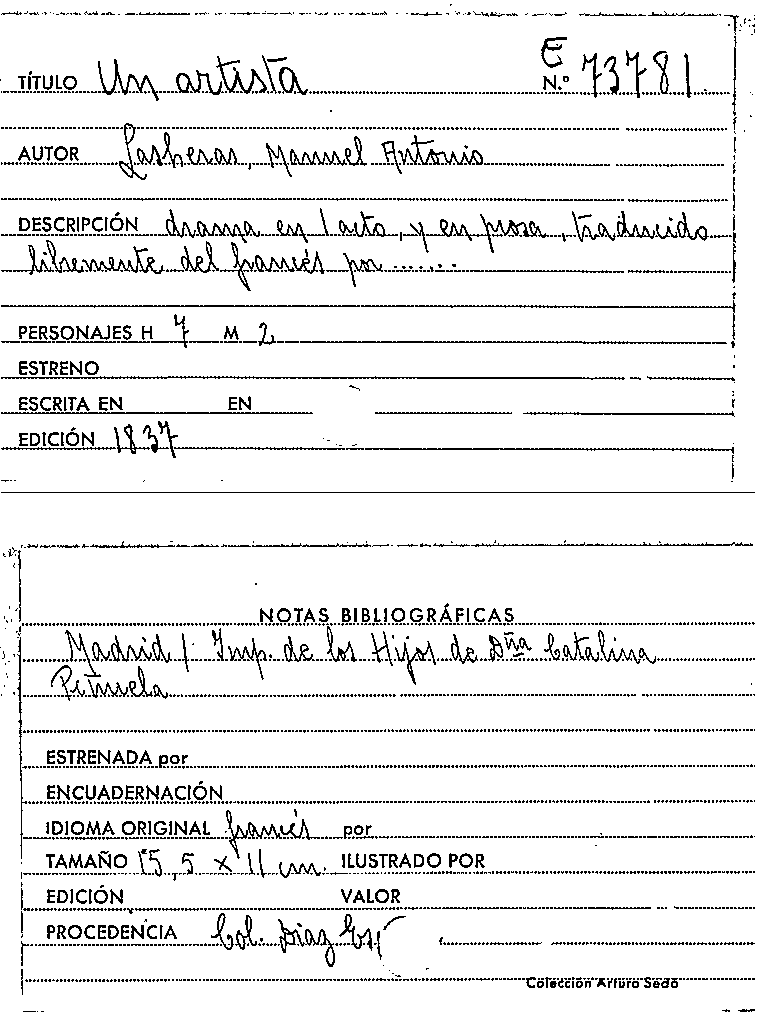 E
TÍTULO Un artista N.º 73781
AUTOR Lasheras, Manuel Antonio
DESCRIPCIÓN drama en 1 acto, y en prosa, traducido
libremente del francés por .......
PERSONAJES H 7 M 2
ESTRENO
ESCRITA EN EN
EDICIÓN 1837
NOTAS BIBLIOGRÁFICAS
Madrid / Imp. de los Hijos de Dña Catalina
Piñuela
ESTRENADA por
ENCUADERNACIÓN
IDIOMA ORIGINAL francés por
TAMAÑO 15,5 x 11 cm. ILUSTRADO POR
EDICIÓN VALOR
PROCEDENCIA Col. Diaz
Colección Arturo Sedó